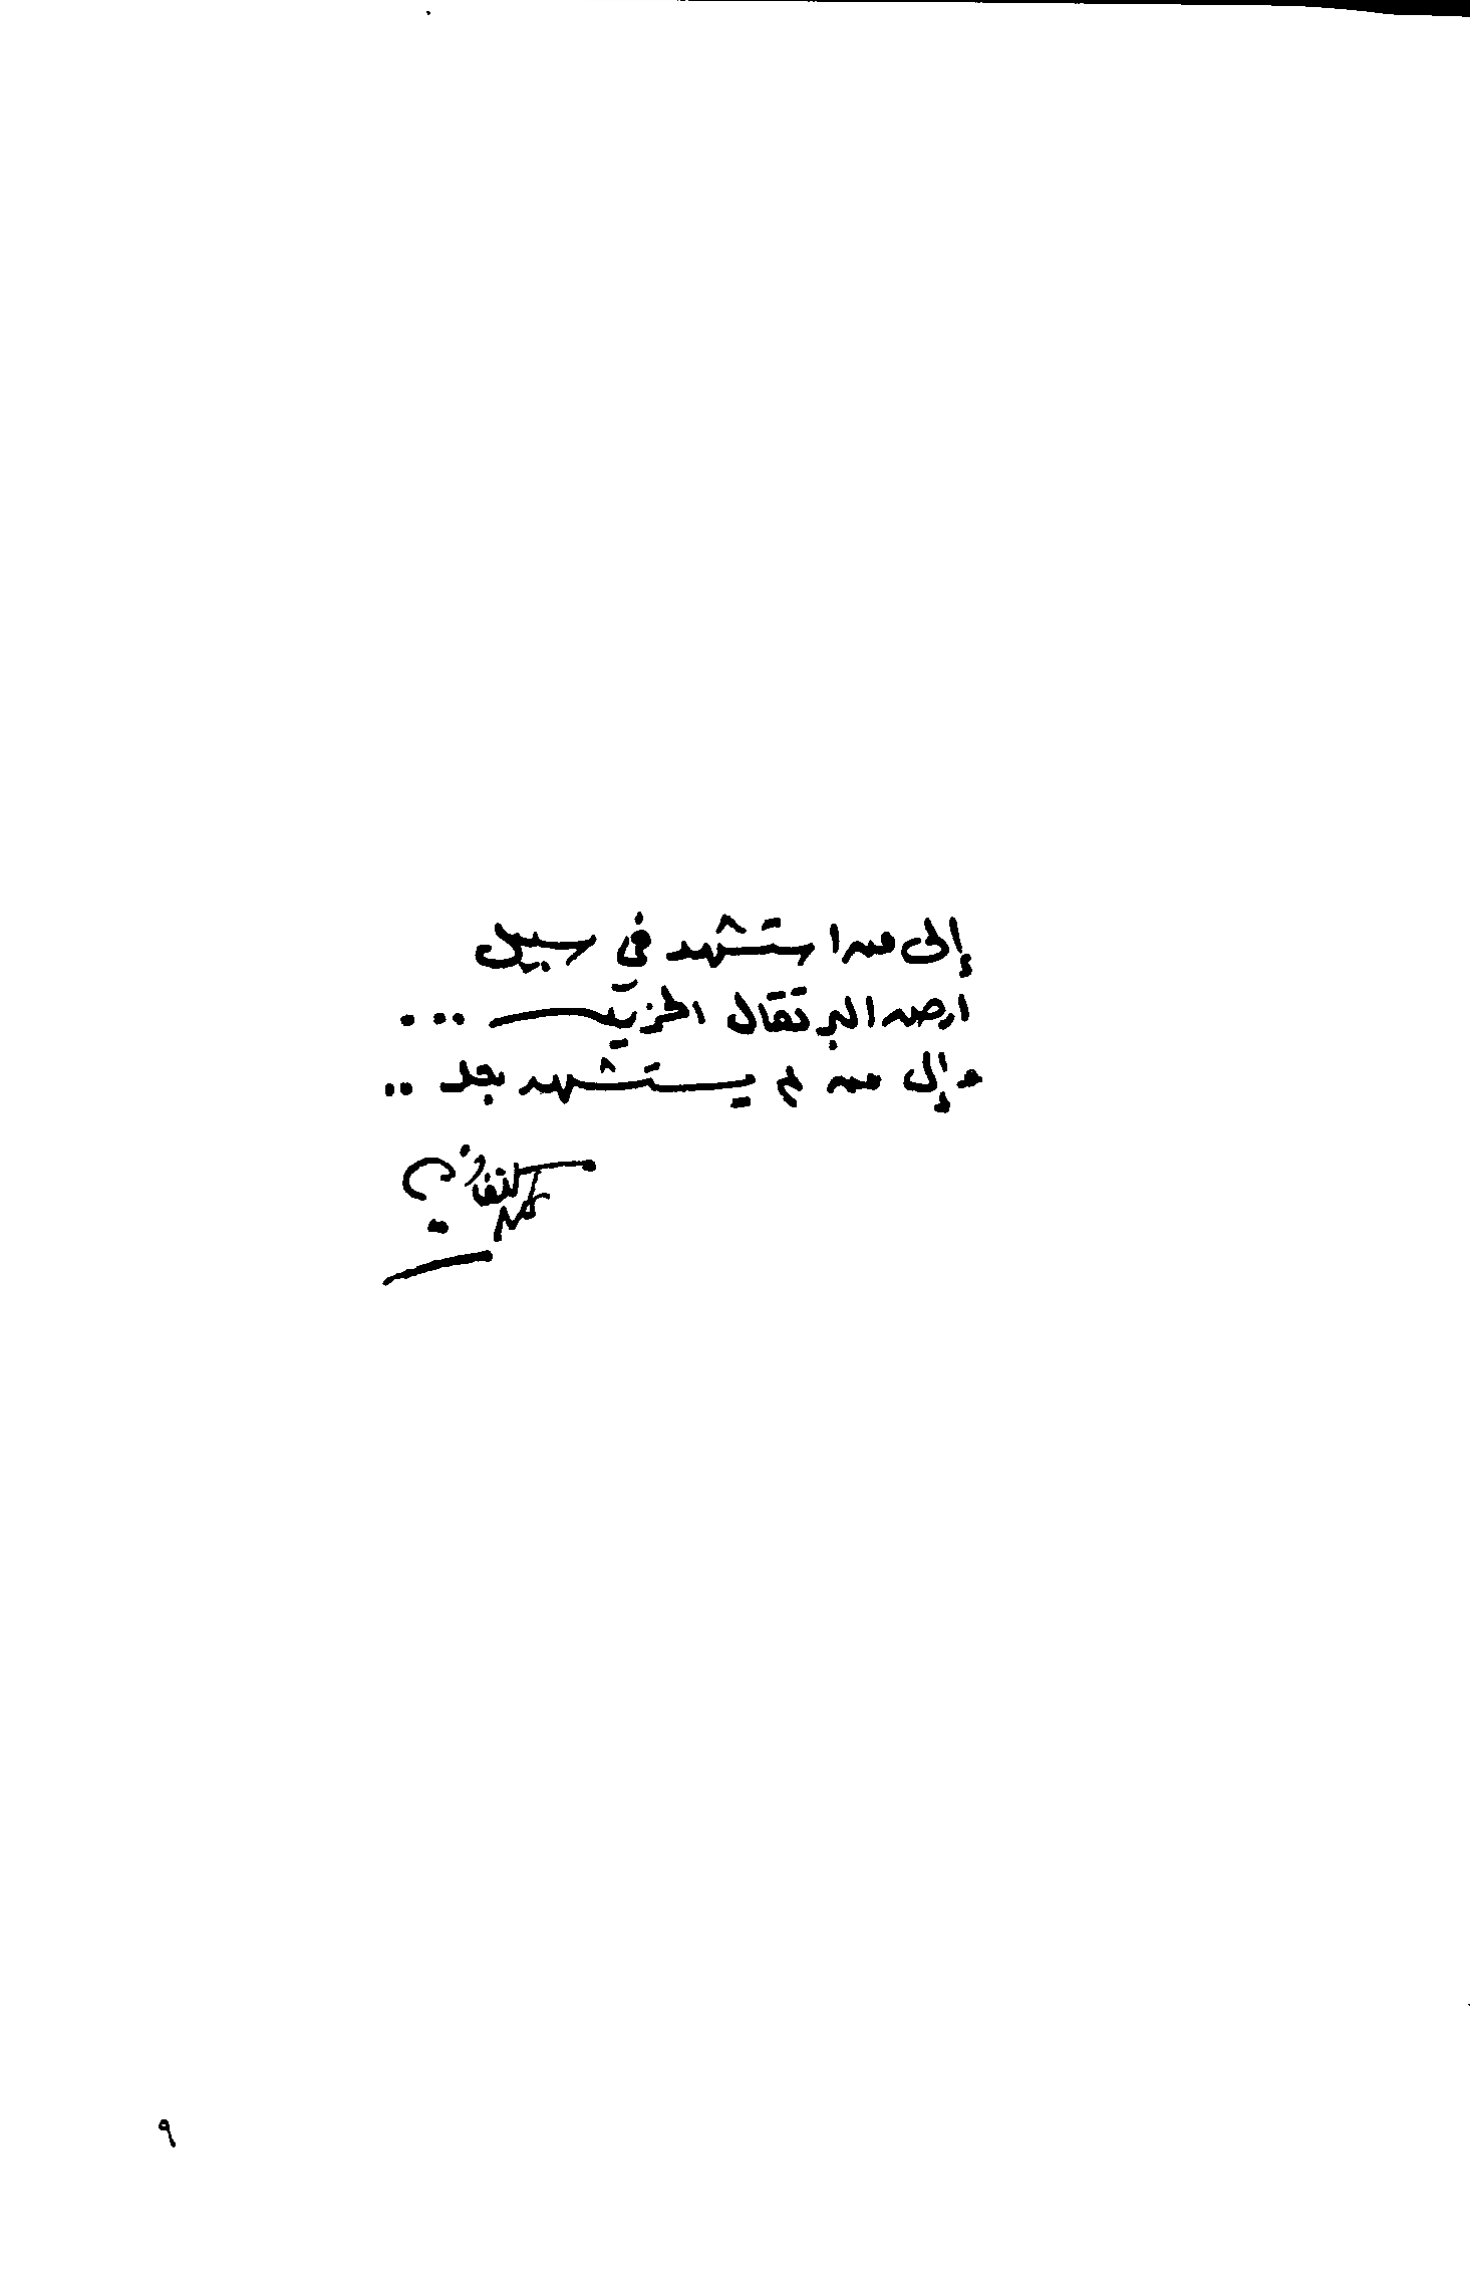 إلى من استشهد في سبيل
ارض البرتقال الحزين ...
وإلى من لم يستشهد بعد ..
٩